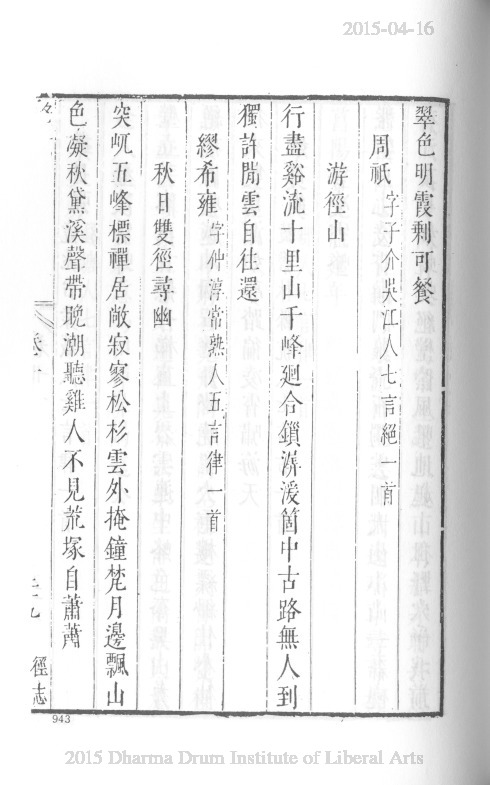 2015-04-16
翠色明霞剩可餐
周祇 字子介吳江人七言絕一首
游徑山
行盡谿流十里山千峰廻合鎖潺湲箇中古路無人到
獨許閒雲自往還
繆希雍 字仲淳常熟人五言律一首
秋日雙徑尋幽
突屼五峰標禪居敞寂寥松杉雲外掩鐘梵月邊飄山
色凝秋黛溪聲帶晚潮聽雞人不見荒塚自蕭蕭
徑志
943
2015 Dharma Drum Institute of Liberal Arts